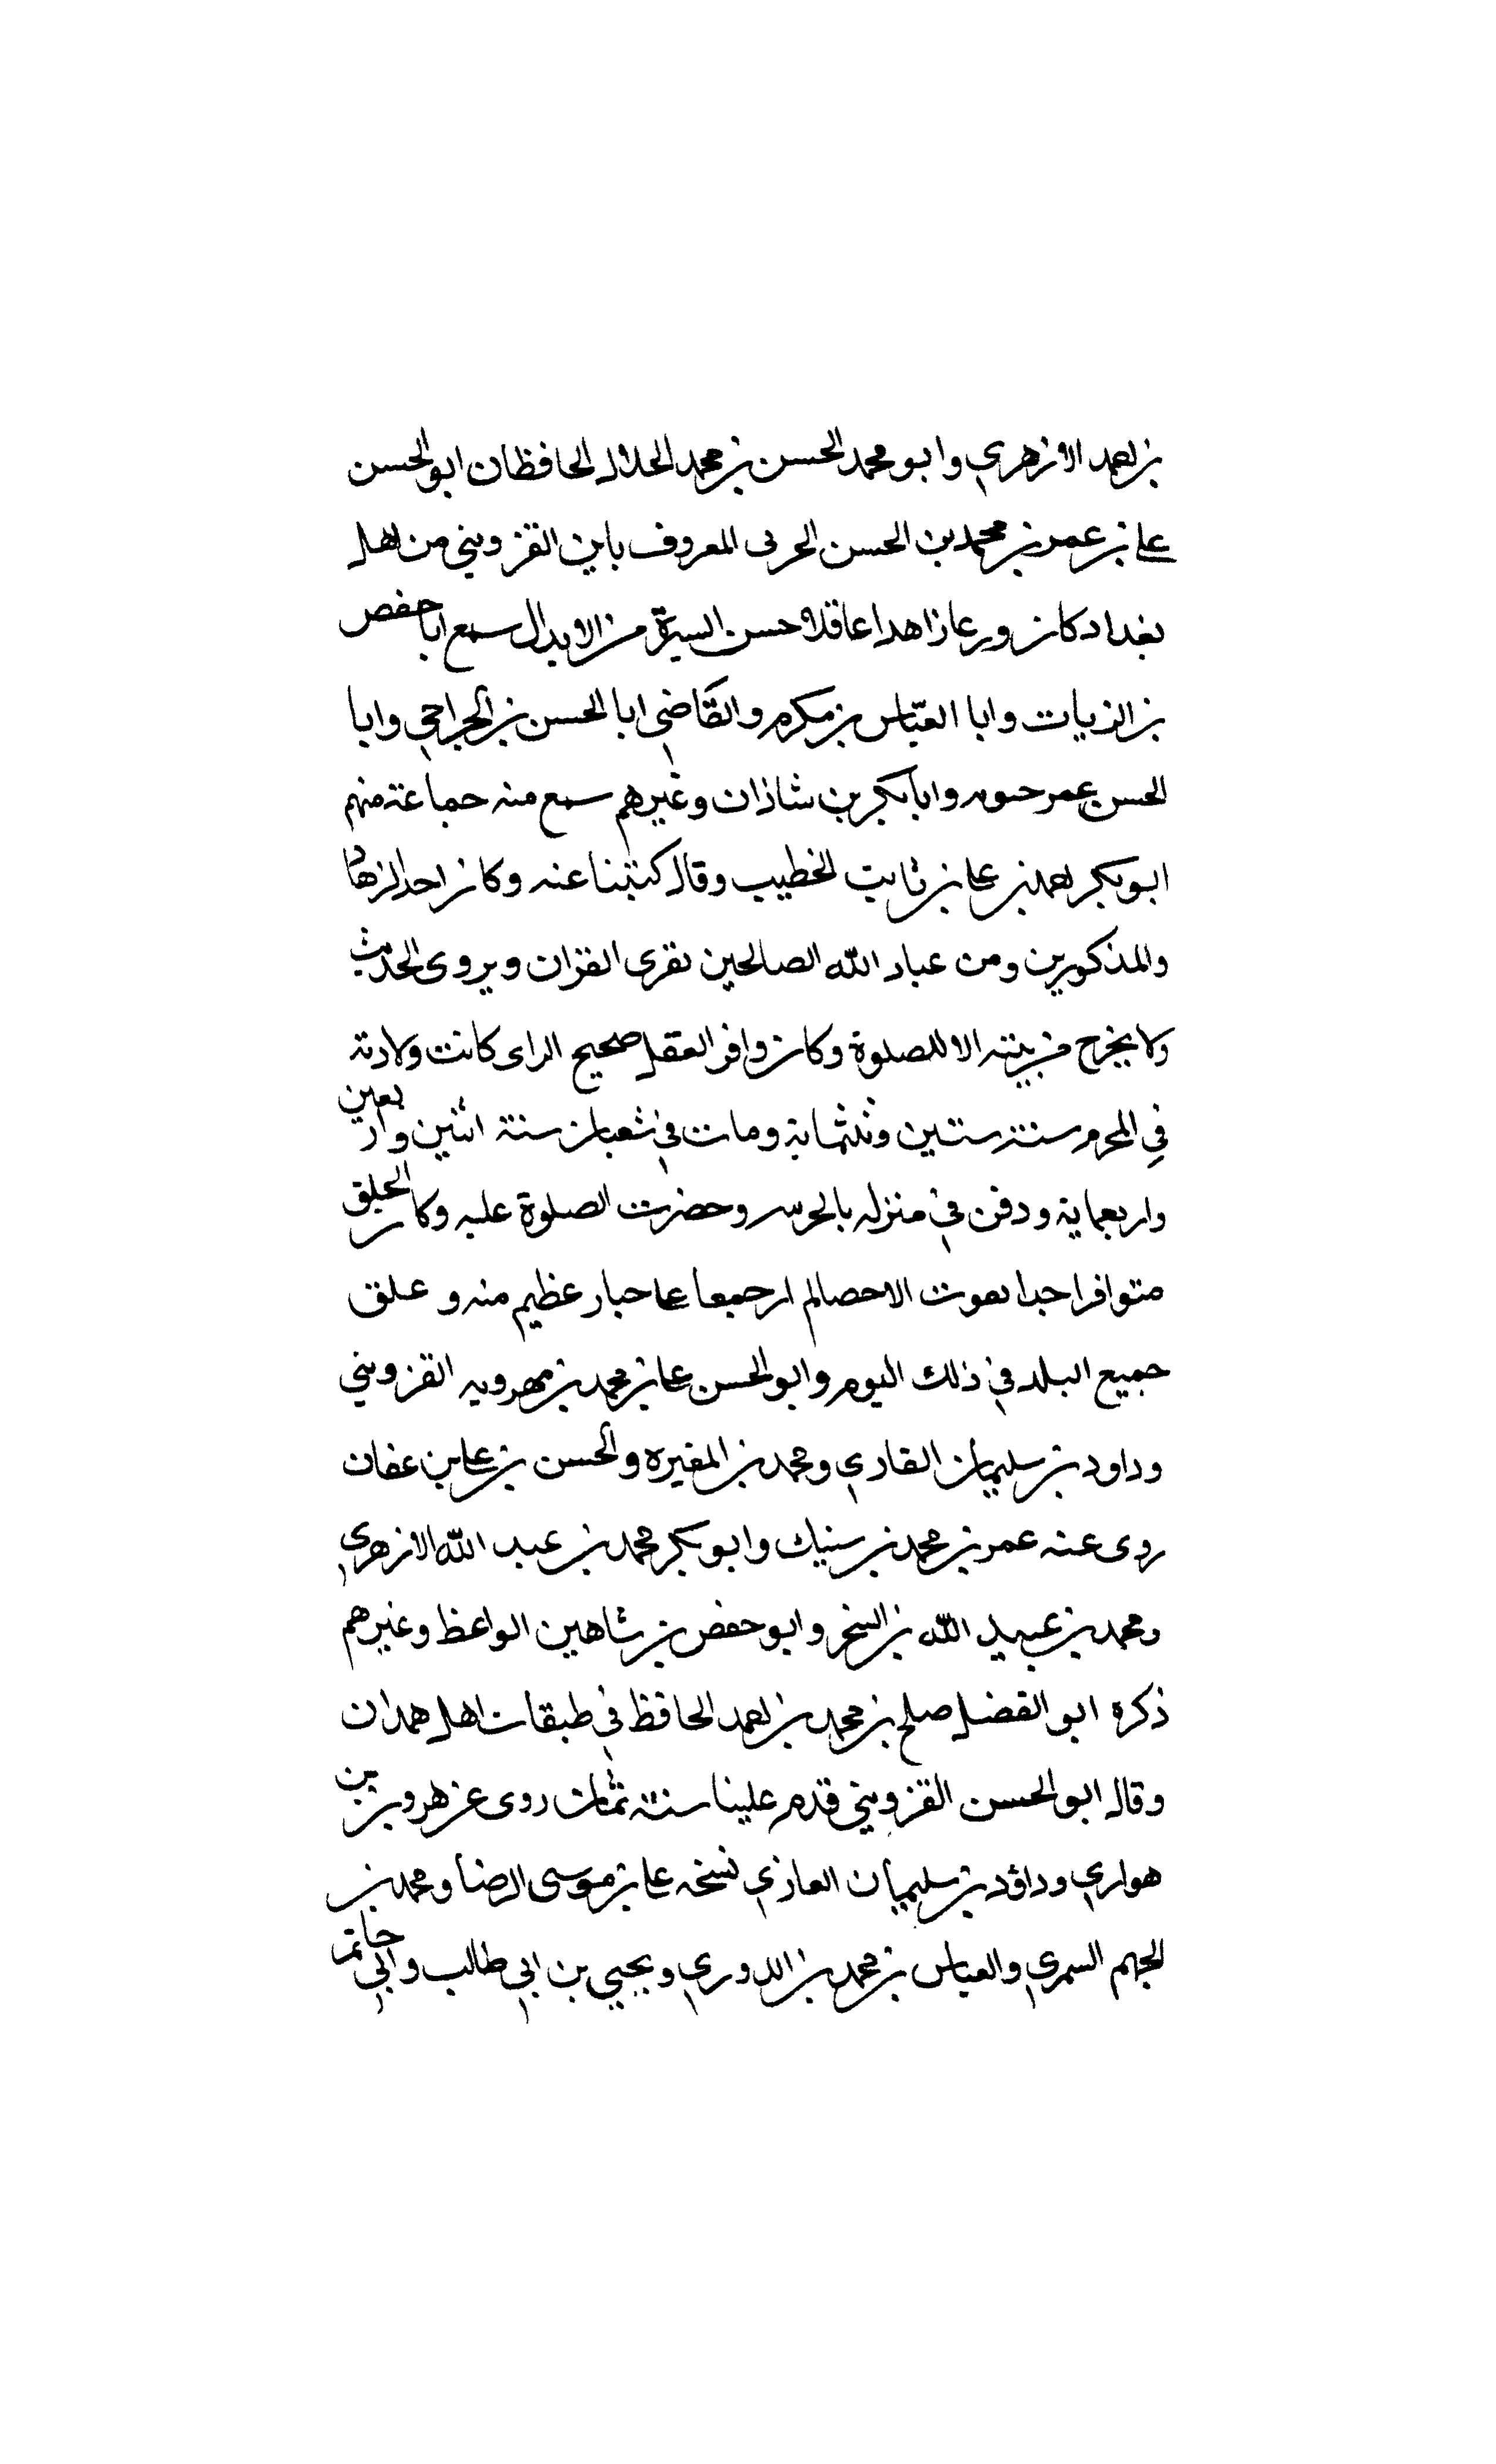 بن احمد الازهري وابو محمد الحسن بن محمد الخلال الحافظان ابو الحسن
علي بن عمر بن محمد بن الحسن الحربى المعروف بابن القزويني من اهل
بغداد كان ورعا زاهدا عاقلا حسن السيرة من الابدال سمع ابا حفص
بن الزيات وابا العباس بن مكرم والقاضي ابا الحسن بن الجراحي وابا
الحسن بن عمر حيويه وابا بكر بن شاذان وغيرهم سمع منه جماعة منهم
ابو بكر احمد بن علي بن ثابت الخطيب وقال كتبنا عنه وكان احد الزهاد
والمذكورين ومن عباد الله الصالحين يقرى القران ويروى الحديث
ولا يخرج من بيته الا للصلوة وكان وافر العقل صحيح الراى كانت ولادته
في المحرم سنة ستين وثلثماية ومات في شعبان سنة اثنين واربعين
واربعماية ودفن في منزله بالحربيه وحضرت الصلوة عليه وكان الخلق
متوافرا جدا يفوت الاحصا لم ار جمعا علي جنازة عظيم منه وغلق
جميع البلد في ذلك اليوم وابو الحسن علي بن محمد بن مهرويه القزويني
وداود بن سليمان القاري ومحمد بن المغيره والحسن بن علي بن عفان
روى عنه عمر بن محمد بن سنبك وابو بكر محمد بن عبد الله الازهري
ومحمد بن عبيد الله بن الشخير وابو حفص بن شاهين الواعظ وغيرهم
ذكره ابو الفضل صلح بن محمد بن احمد الحافظ في طبقات اهل همدان
وقال ابو الحسن القزويني قدم علينا سنة ثمان روى عن هرون بن
هواري وداؤد بن سليمان الغازي نسخه علي بن موسى الرضا ومحمد بن
الجهم السمري والعباس بن محمد بن الدوري ويحيي بن ابي طالب وابي حاتم